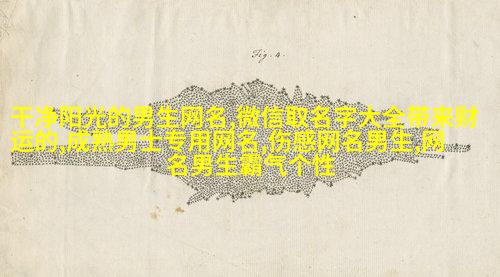 Fig. 4.
干净阳光的男生网名,微信取名字大全带来财
运的,成熟男士专用网名,伤感网名男生,网
名男生霸气个性